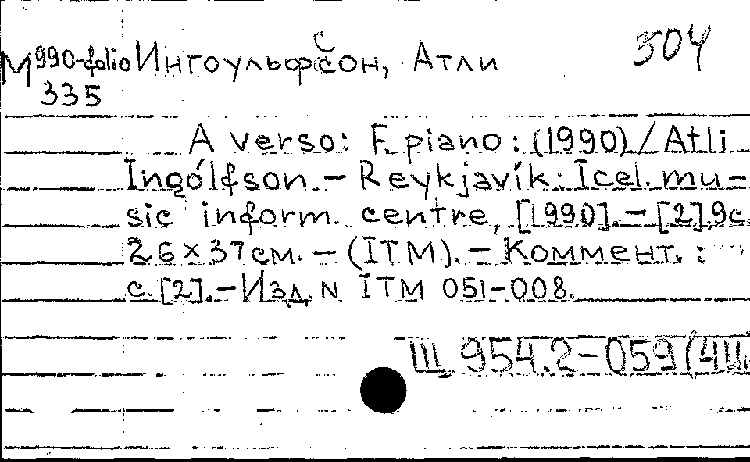 М990-folio Ингоульфссон, Атли 504
335
A verso: F. piano: (1990) / Atli
Ingólfsson. – Reykjavík: Icel. mu-
sic inform. centre, [1990]. – [2] 9 с.
26×37 см. – (ITM). – Коммент. :
с. [2]. – Изд. N ITM 051-008.
Ш 954.2-059(4И